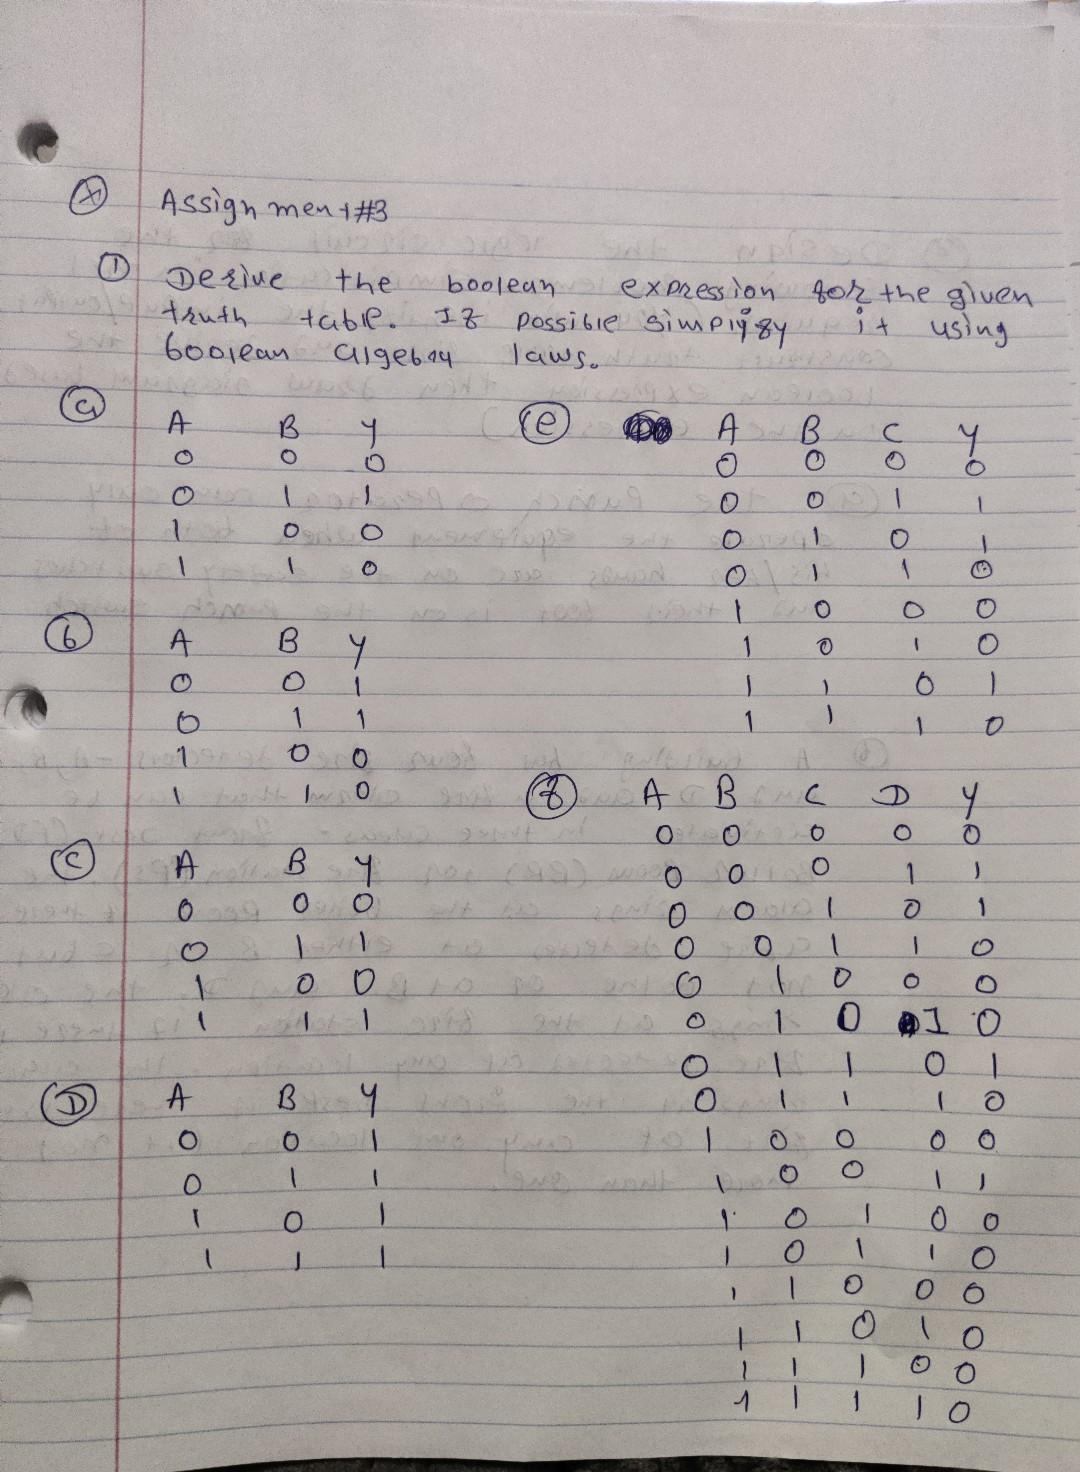 Assignment #3
① Derive the boolean expression for the given
truth table. If possible simplify it using
boolean algebray laws.
ⓐ
A B Y
0 0 0
0 1 1
1 0 0
1 1 0
ⓑ
A B Y
0 0 1
0 1 1
1 0 0
1 1 0
ⓒ
A B Y
0 0 0
0 1 1
1 0 0
1 1 1
Ⓓ
A B Y
0 0 1
0 1 1
1 0 1
1 1 1
ⓔ
A B C Y
0 0 0 0
0 0 1 1
0 1 0 1
0 1 1 0
1 0 0 0
1 0 1 0
1 1 0 1
1 1 1 0
ⓕ
A B C D Y
0 0 0 0 0
0 0 0 1 1
0 0 1 0 1
0 0 1 1 0
0 1 0 0 0
0 1 0 1 0
0 1 1 0 1
0 1 1 1 0
1 0 0 0 0
1 0 0 1 1
1 0 1 0 0
1 0 1 1 0
1 1 0 0 0
1 1 0 1 0
1 1 1 0 0
1 1 1 1 0